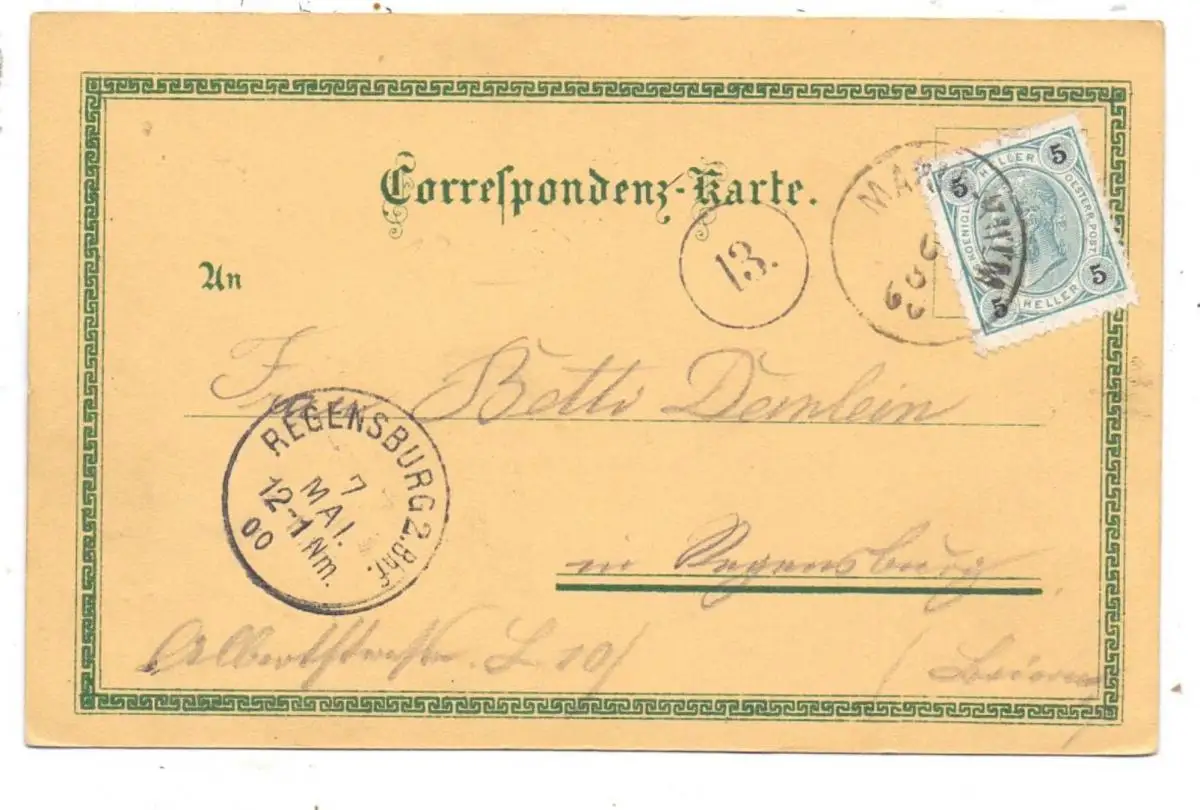 Correspondenz-Karte.
13.
5 HELLER 5
OESTERR. POST.
KOENIGL.
5 HELLER 5
An
Frau Betti Demlein
REGENSBURG 2.Bhf.
7
MAI.
12-1 Nm.
00
in Regensburg
Albertstraße L 10/